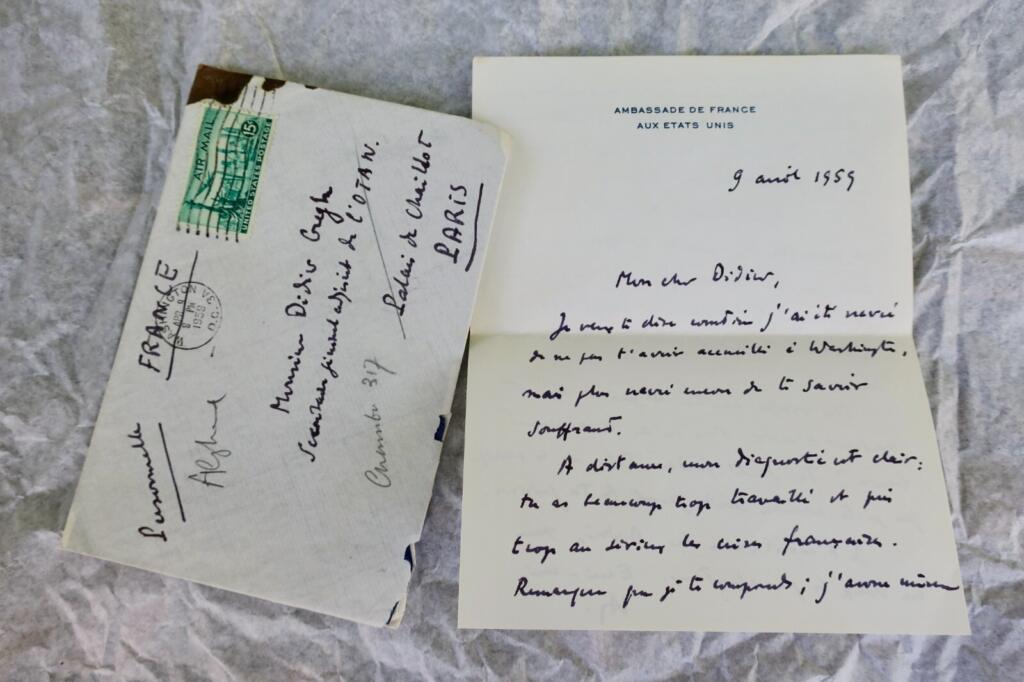 AIR MAIL
15¢
UNITED STATES POSTAGE
FRANCE
WASHINGTON
APR 9
PM
1959
D.C.
Personnelle
Alphand
Monsieur Didier
Secrétaire général adjoint de l'OTAN.
Palais de Chaillot
PARIS
Chambre 317
AMBASSADE DE FRANCE
AUX ETATS UNIS
9 avril 1959
Mon cher Didier,
Je veux te dire combien j'ai été navré
de ne pas t'avoir accueilli à Washington,
mais plus navré encore de te savoir
souffrant.
A distance, mon diagnostic est clair:
tu as beaucoup trop travaillé et pris
trop au sérieux les crises françaises.
Remarque que je te comprends; j'avoue même